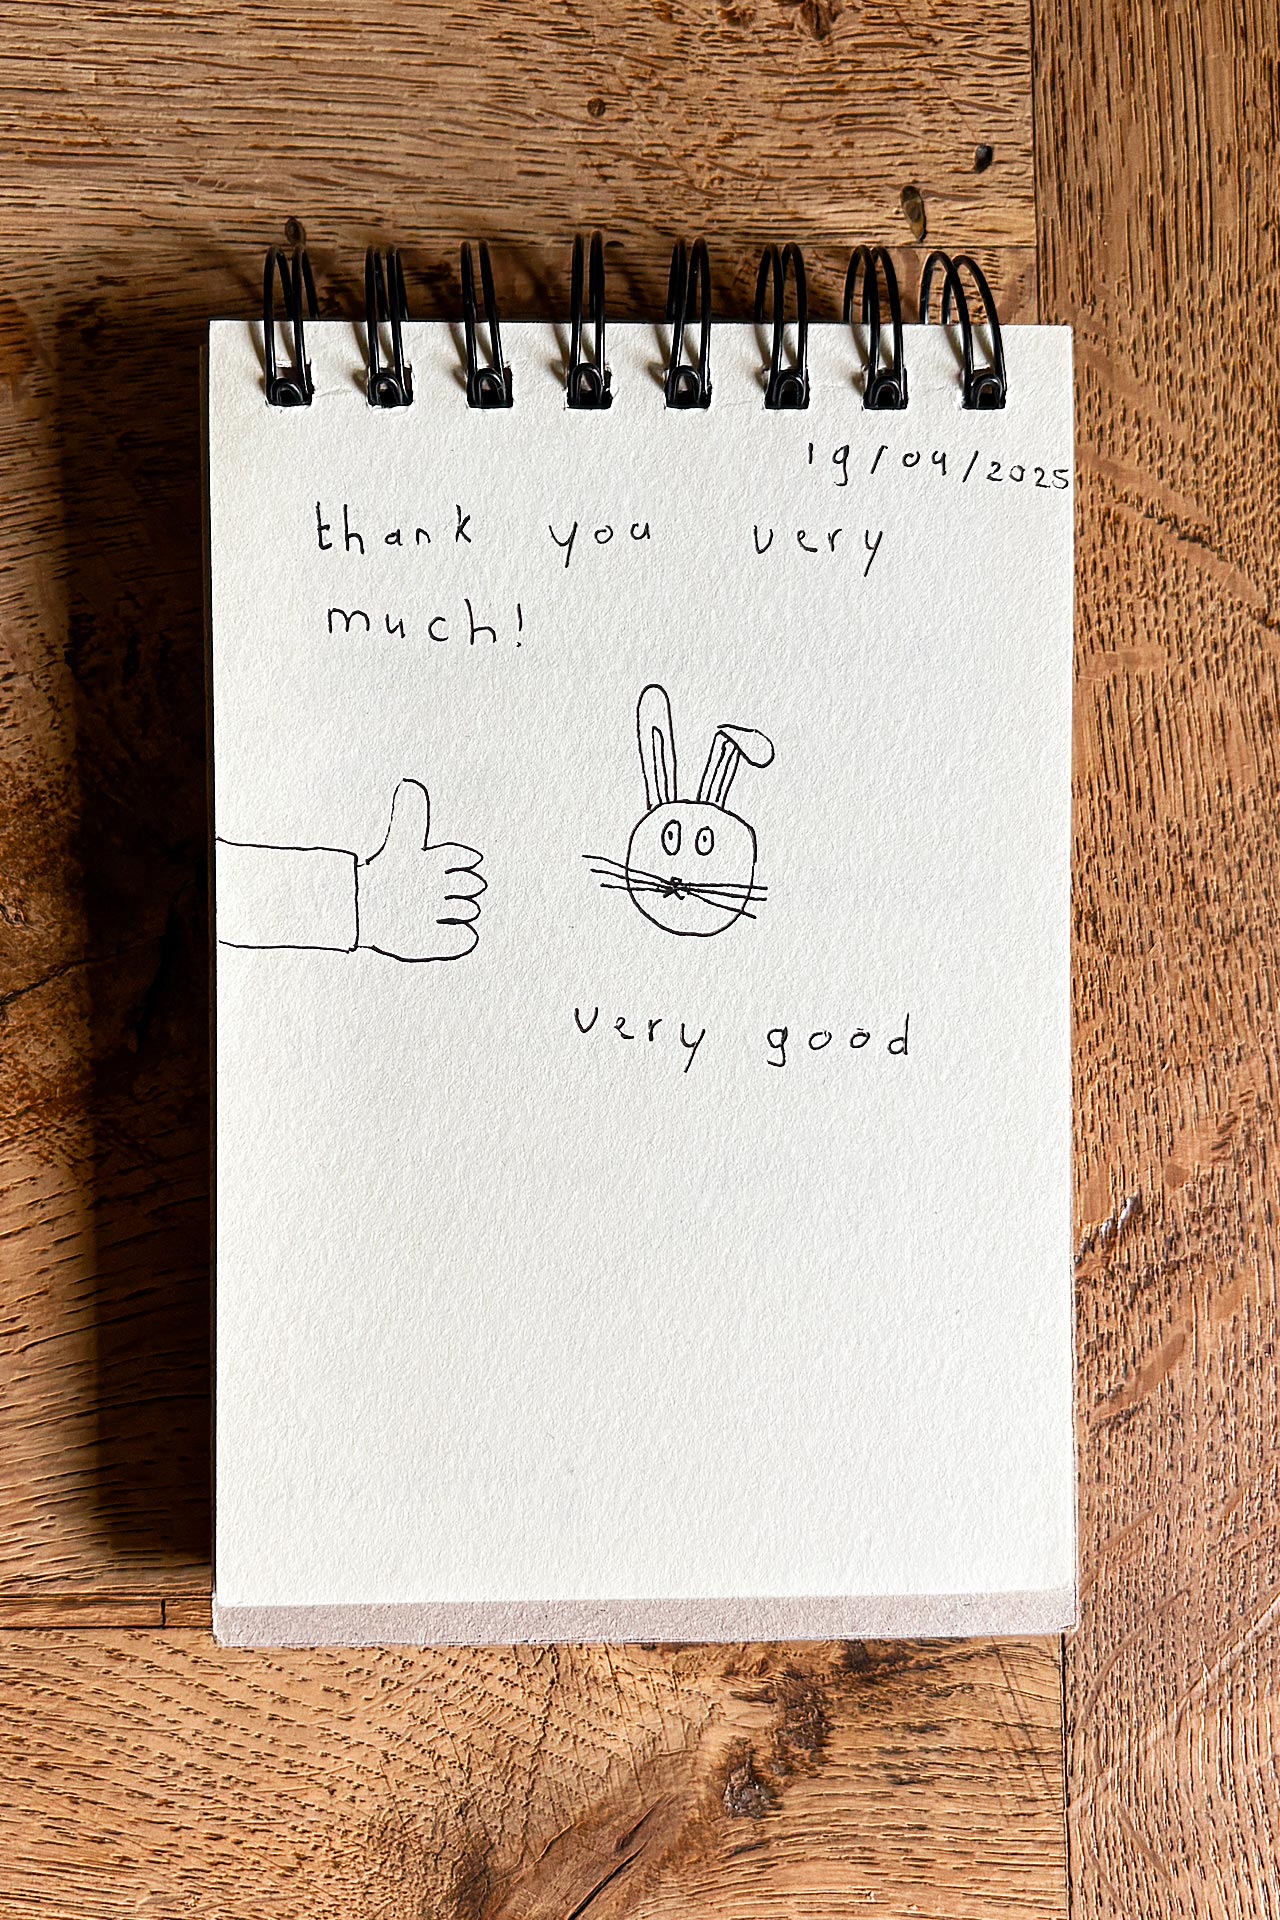 19/04/2025
thank you very
much!
very good